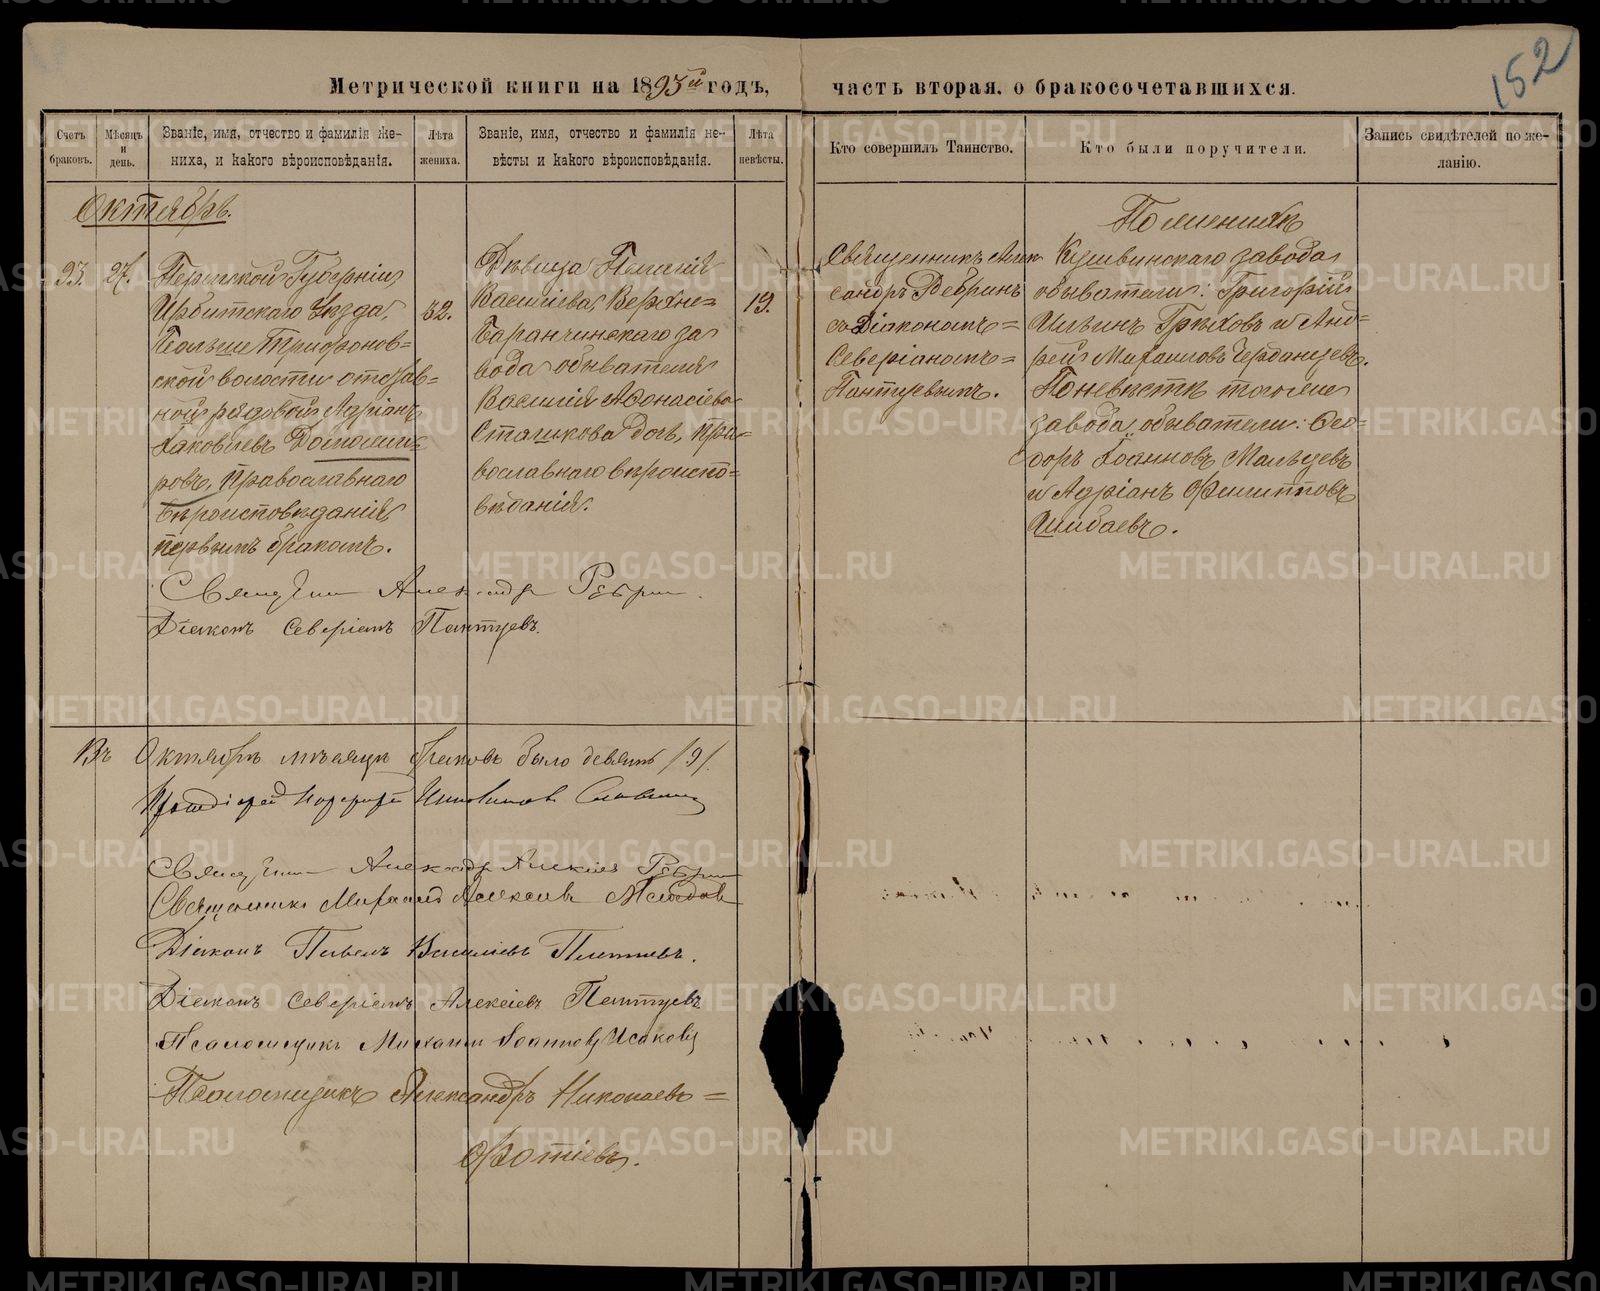 152
Метрической книги на 1893й годъ, часть вторая, о бракосочетавшихся.
Счетъ браковъ.
Мѣсяцъ и день.
Званіе, имя, отчество и фамилія жениха, и какого вѣроисповѣданія.
Лѣта жениха.
Званіе, имя, отчество и фамилія невѣсты и какого вѣроисповѣданія.
Лѣта невѣсты.
Кто совершилъ Таинство.
Кто были поручители.
Запись свидѣтелей по желанію.
Октябрь.
93. 27.
Пермской Губерніи
Ирбитскаго Уѣзда,
Больше Трифонов=
ской волости отстав=
ной рядовой Адріанъ
Іаковлевъ
ровъ, православнаго
вѣроисповѣданія,
первымъ бракомъ.
32.
Дѣвица
Василіева, Верхне=
Баранчинскаго за
вода обывателя
Василія Аѳонасіева
Сташкова дочь, пра=
вославнаго вѣроиспо=
вѣданія.
19.
Священникъ Алек
сандръ Ребринъ
съ Діакономъ=
Северіаномъ=
Пантуевымъ.
По женихѣ
Кушвинскаго завода
обыватели: Григорій
Ильинъ Грѣховъ и Анд=
рей Михаиловъ Чердынцевъ.
По невѣстѣ того же
завода обыватели: Ѳео=
доръ Іоанновъ Мальцевъ
и Адріанъ Филипповъ
Шибаевъ.
Священникъ Александръ Ребринъ.
Діаконъ Северіанъ Пантуевъ.
Въ Октябрѣ мѣсяцѣ браковъ было девять /9/.
Священникъ Александръ Алексіевъ Ребринъ
Священникъ Михаилъ Алексѣевъ
Діаконъ Павелъ Василіевъ
Діаконъ Северіанъ Алексіевъ Пантуевъ
Псаломщикъ Михаилъ Іоанновъ Исаковъ
Псаломщикъ Александръ Николаевъ=
Фотіевъ.
METRIKI.GASO-URAL.RU